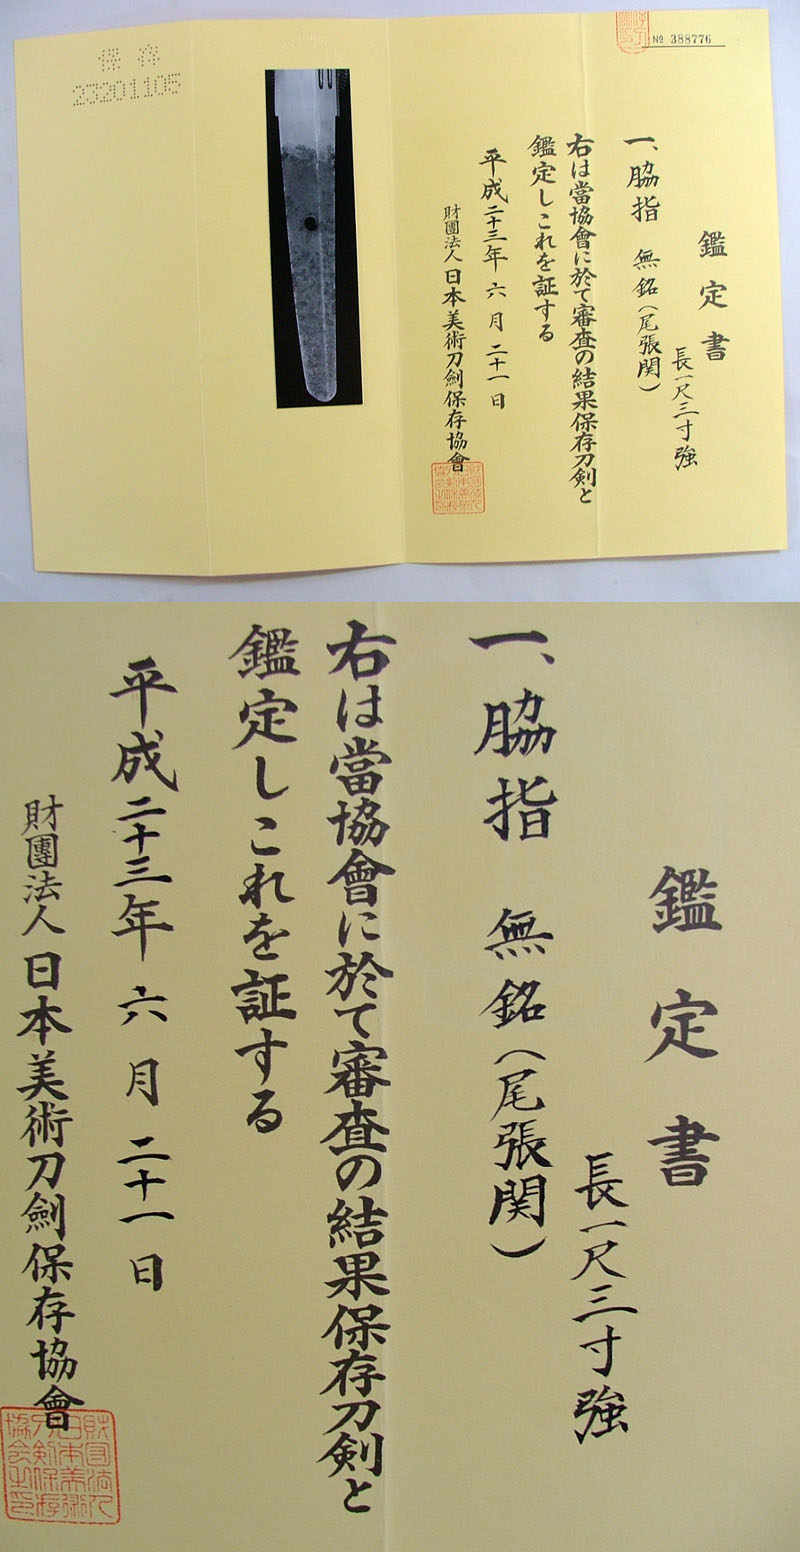 保存
23201105
№ 388776
鑑定書
一、脇指 無銘(尾張関)
長一尺三寸強
右は當協會に於て審査の結果保存刀剣と
鑑定しこれを証する
平成二十三年六月二十一日
財團法人日本美術刀劍保存協會
鑑定書
長一尺三寸強
一、脇指 無銘(尾張関)
右は當協會に於て審査の結果保存刀剣と
鑑定しこれを証する
平成二十三年六月二十一日
財團法人日本美術刀劍保存協會